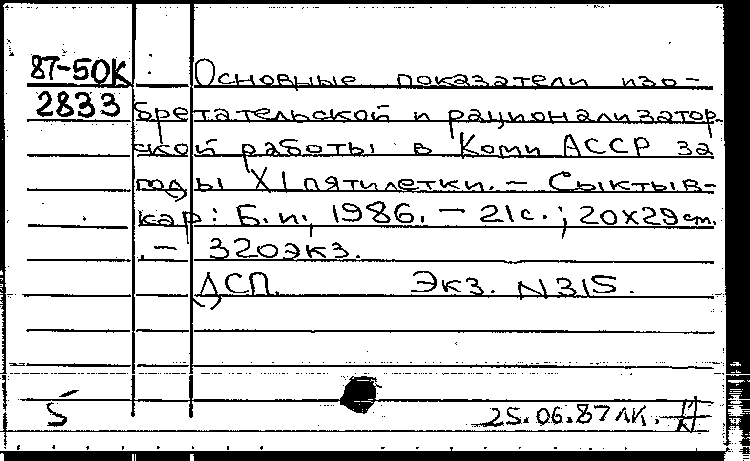 87-50К Основные показатели изо-
2833 бретательской и рационализатор-
ской работы в Коми АССР за
годы XI пятилетки. - Сыктыв-
кар: Б. и., 1986. - 21с.; 20х29см.
. - 320экз.
ДСП. Экз. N315.
5 25.06.87 ЛК.